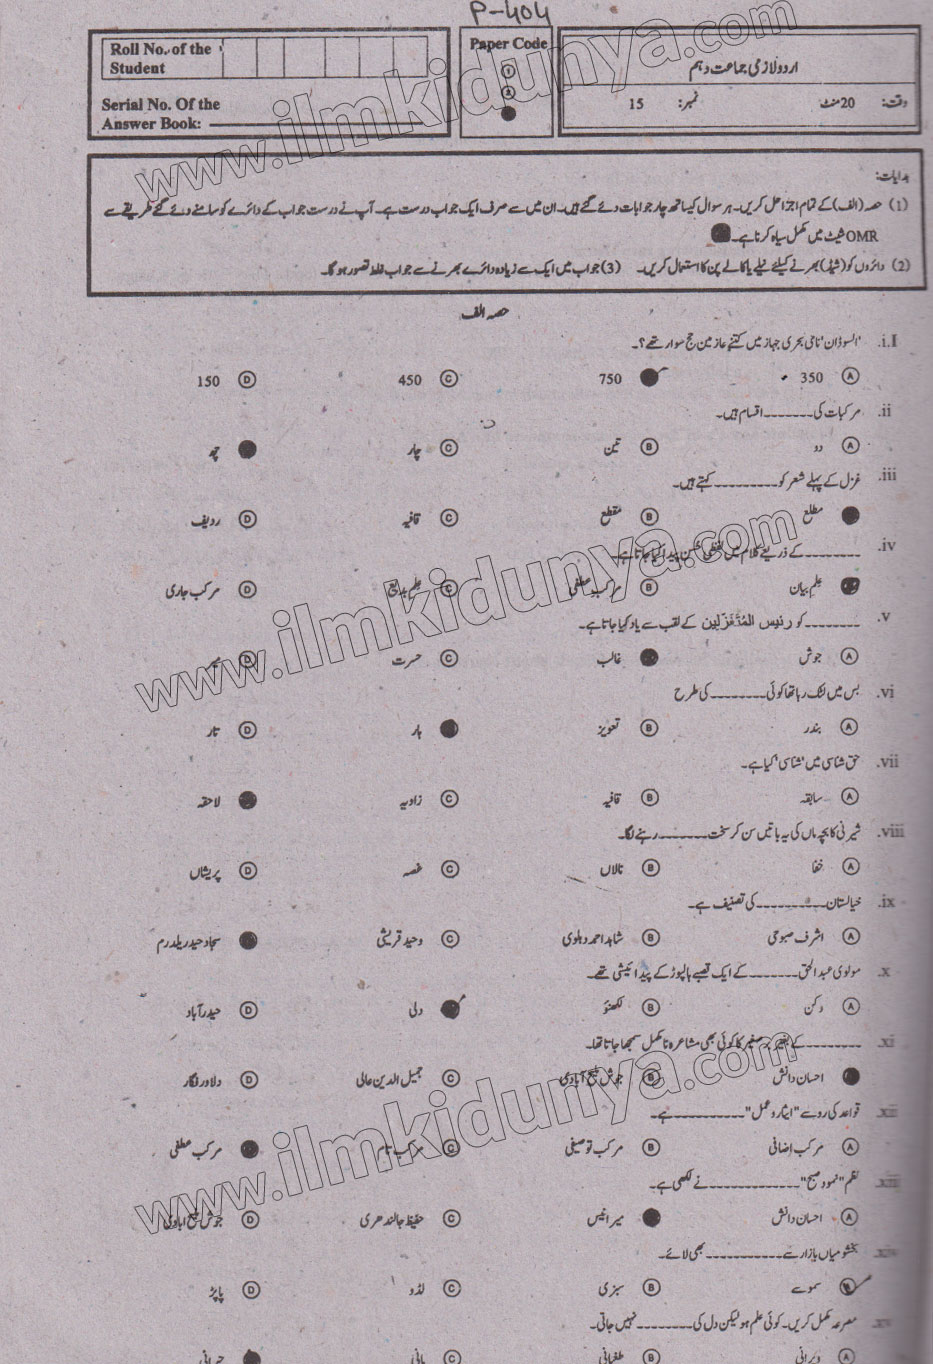 P-404
Roll No. of the
Student
Serial No. Of the
Answer Book:
Paper Code
1
2
اردو لازمی جماعت دہم
وقت: 20 منٹ نمبر: 15
ہدایات:
(1) حصہ (الف) کے تمام اجزا حل کریں۔ ہر سوال کیساتھ چار جوابات دئے گئے ہیں۔ ان میں سے صرف ایک جواب درست ہے۔ آپ نے درست جواب کے دائرے کو سامنے دئے گئے طریقے سے
OMR شیٹ میں مکمل سیاہ کرنا ہے۔
(2) دائروں کو (شیڈ) بھرنے کیلئے نیلے یا کالے پن کا استعمال کریں۔ (3) جواب میں ایک سے زیادہ دائرے بھرنے سے جواب غلط تصور ہو گا۔
حصہ الف
i.I. 'السوڈان' نامی بحری جہاز میں کتنے عازمین حج سوار تھے؟۔
A 350 750 C 450 D 150
ii. مرکبات کی۔۔۔۔۔۔۔اقسام ہیں۔
A دو B تین C چار چھ
iii. غزل کے پہلے شعر کو۔۔۔۔۔۔۔۔۔کہتے ہیں۔
مطلع B مقطع C قافیہ D ردیف
iv. ۔۔۔۔۔۔۔کے ذریعے کلام میں لفظی حُسن پیدا کیا جاتا ہے۔
علم بیان B مرکب عطفی C علم بدائع D مرکب جاری
v. ۔۔۔۔۔۔۔کو رئیس المُتَغَزّلین کے لقب سے یاد کیا جاتا ہے۔
A جوش غالب C حسرت D میر
vi. بس میں لٹک رہا تھا کوئی۔۔۔۔۔۔۔کی طرح
A بندر B تعویز ہار D تار
vii. حق شناسی میں 'شناسی' کیا ہے۔
A سابقہ B قافیہ C زاویہ لاحقہ
viii. شیرنی کا بچہ ماں کی یہ باتیں سن کر سخت۔۔۔۔۔۔۔رہنے لگا۔
A خفا B نالاں C غصہ D پریشاں
ix. خیالستان۔۔۔۔۔۔۔۔۔کی تصنیف ہے۔
A اشرف صبوحی B شاہد احمد دہلوی C وحید قریشی سجاد حیدر یلدرم
x. مولوی عبدالحق۔۔۔۔۔۔۔کے ایک قصبے ہاپوڑ کے پیدائیشی تھے۔
A دکن B لکھنؤ دلی D حیدرآباد
xi. ۔۔۔۔۔۔۔کے بغیر برصغیر کا کوئی بھی مشاعرہ نامکمل سمجھا جاتا تھا۔
احسان دانش B جوش ملیح آبادی C جمیل الدین عالی D دلاور فگار
xii. قواعد کی رو سے "ایثار و عمل"۔۔۔۔۔۔۔۔۔ہے۔
A مرکب اضافی B مرکب توصیفی C مرکب تام مرکب عطفی
xiii. نظم "نمود صبح"۔۔۔۔۔۔۔۔۔۔۔نے لکھی ہے۔
A احسان دانش میر انیس C حفیظ جالندھری D جوش ملیح آبادی
xiv. بخشو میاں بازار سے۔۔۔۔۔۔۔۔۔بھی لائے۔
سموسے B سبزی C لڈو D پاپڑ
xv. مصرعہ مکمل کریں۔ کوئی علم ہو لیکن دل کی۔۔۔۔۔۔۔نہیں جاتی۔
A ویرانی B طغیانی C پانی حیرانی
www.ilmkidunya.com
www.ilmkidunya.com
www.ilmkidunya.com